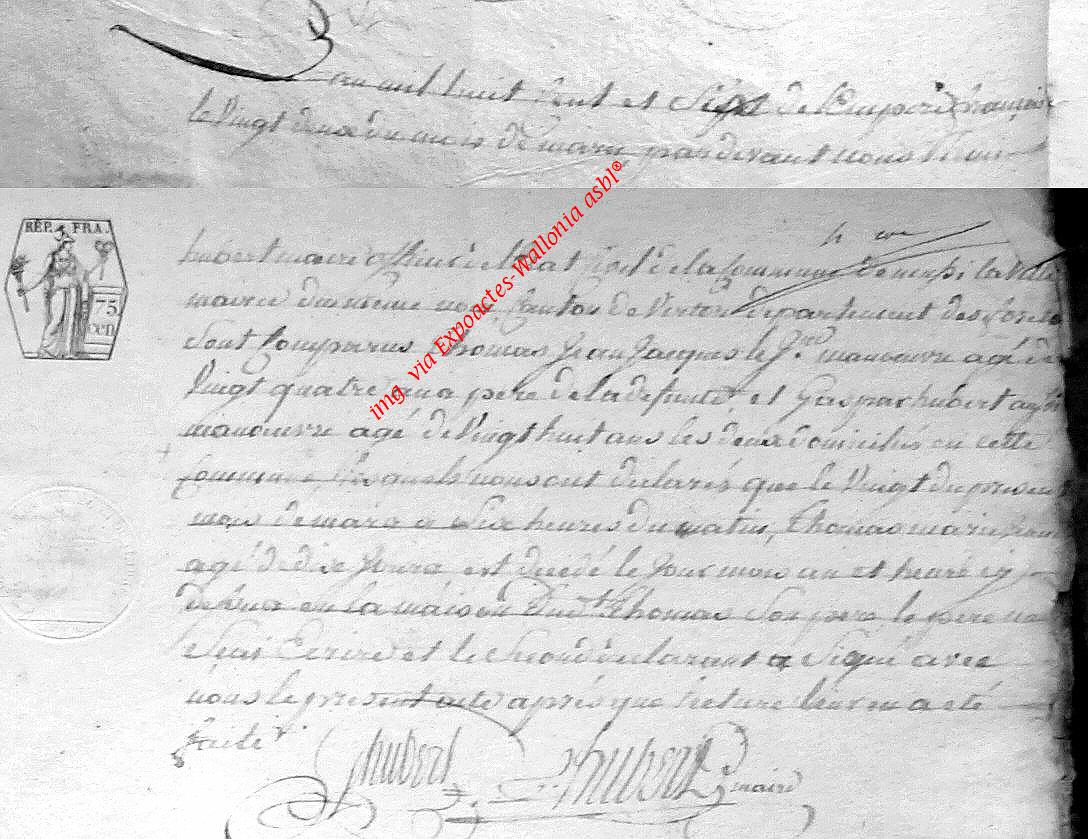 an mil huit Cent et Sept de L'empire français
le Vingt deux du mois de mars pardevant nous
hubert maire officier de l'Etat Civil de la Commune de la Ville
mairie du même nom Canton de Virton departement des forets
sont Comparus Thomas Jean Jacques le Jne manœuvre agé de
Vingt quatre ans pere de la defunte et Gaspar hubert
manœuvre agé de Vingt huit ans les deux domiciliés en cette
Commune les quels nous ont déclarés que le Vingt du presen
mois de mars a Six heures du matin, Thomas marie
agé de dix Jours est décédé le Jour mois an et heure cy
de sus en la maison dudt Thomas Son pere le pere ne
Scait Ecrire et le Second declarant a Signé avec
nous le present acte aprés que lecture leur en a eté
faite
Ghubert hubert maire
REP. FRA.
75
cen
img. via Expoactes-Wallonia asbl®